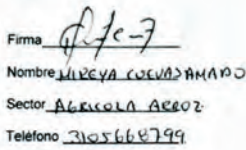 Firma
Nombre MIREYA CUEVAS AMADO
Sector AGRICOLA ARROZ
Teléfono 3105668799